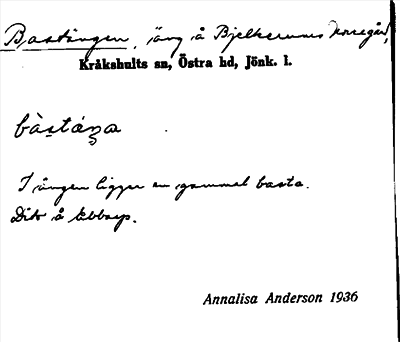 Bastängen, äng å Bjelkerums norregård,
Kråkshults sn, Östra hd, Jönk. l.
bàstáŋa
I ängen ligger en gammal basta.
Dito å Ebbarp.
Annalisa Anderson 1936